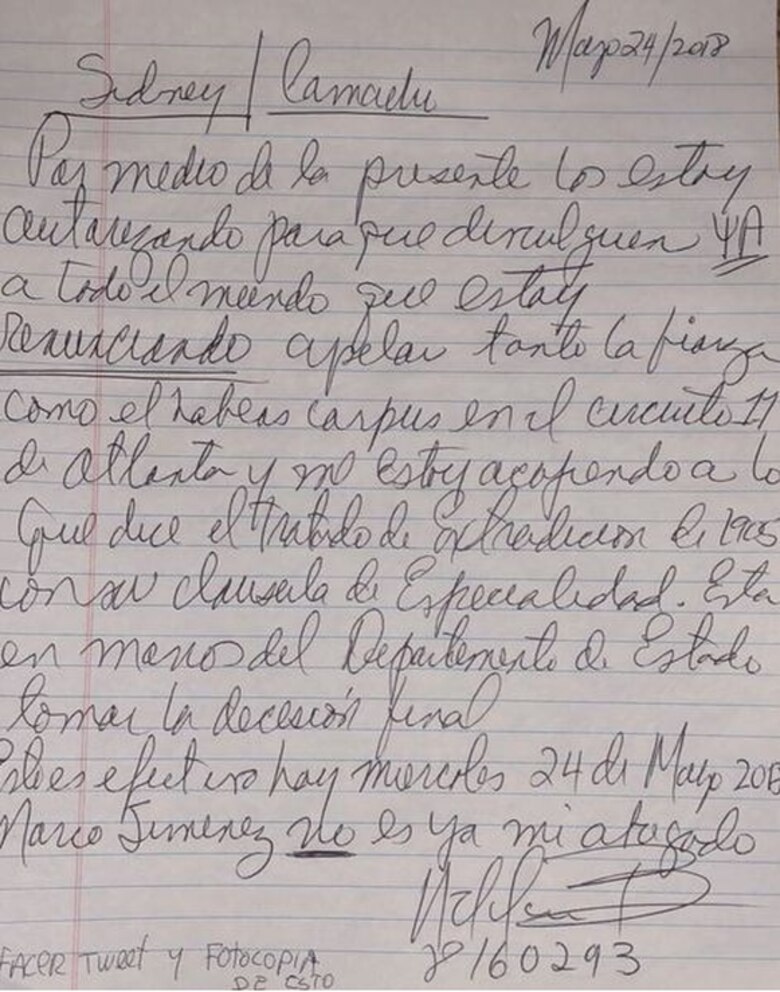 Mayo 24/2018
Sidney / Camaelu
Por medio de la presente los estoy
autorizando para que divulguen YA
a todo el mundo que estoy
Renunciando apelar tanto la fianza
como el habeas corpus en el circuito 11
de Atlanta y me estoy acogiendo a lo
que dice el tratado de Extradicion de 1905
con su clausula de Especialidad. Esta
en manos del Departamento de Estado
tomar la decision final
efectivo hoy miercoles 24 de Mayo 2018
Marco Jimenez no es ya mi abogado
28160293
HACER TWEET Y FOTOCOPIA
DE ESTO